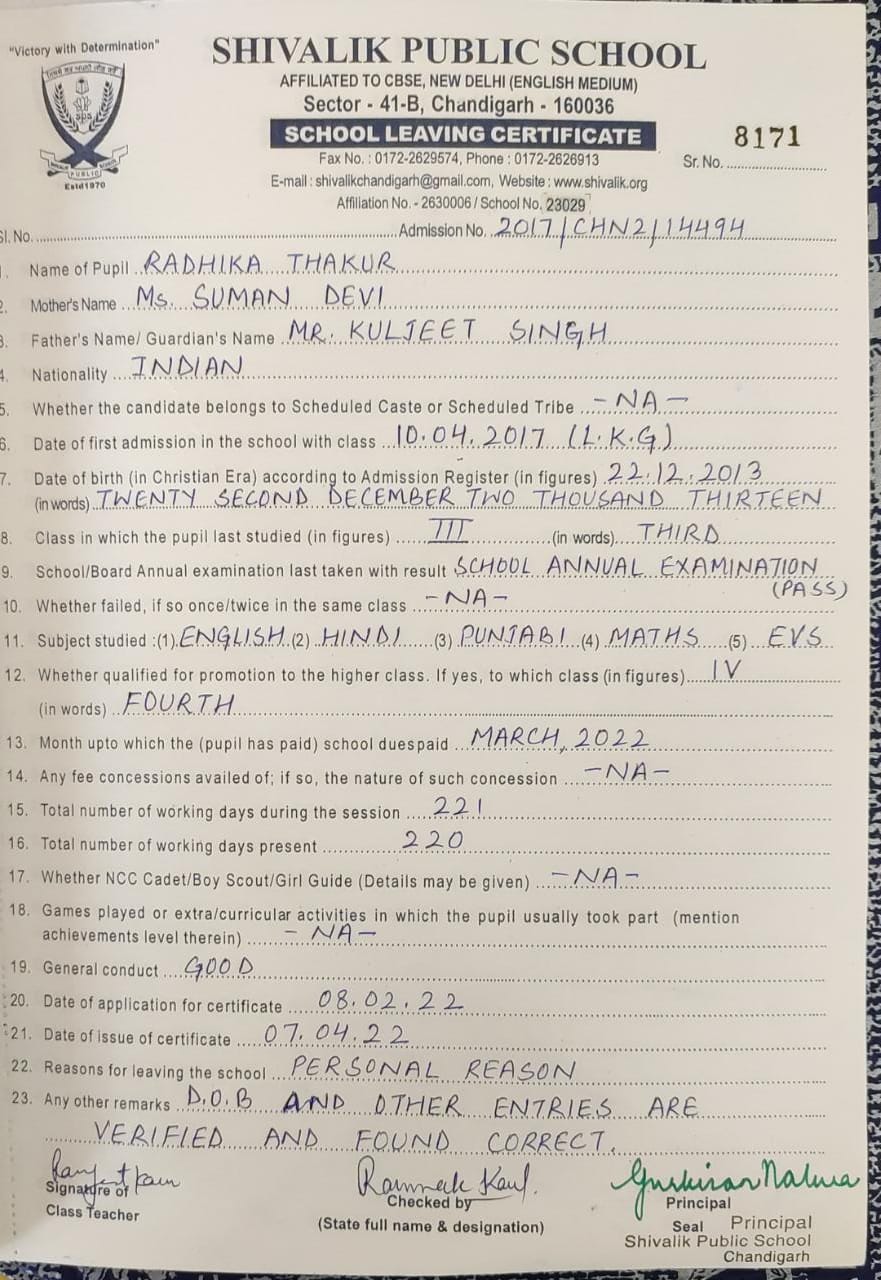 "Victory with Determination"
SHIVALIK PUBLIC SCHOOL
AFFILIATED TO CBSE, NEW DELHI (ENGLISH MEDIUM)
Sector - 41-B, Chandigarh - 160036
SCHOOL LEAVING CERTIFICATE
8171
Fax No. : 0172-2629574, Phone : 0172-2626913
Sr. No. ..........
E-mail : shivalikchandigarh@gmail.com, Website : www.shivalik.org
Affiliation No. - 2630006 / School No. 23029
PUBLIC
Estd 1970
Sl. No. .......... Admission No. 2017/CHN2/14494
1. Name of Pupil RADHIKA THAKUR
2. Mother's Name Ms. SUMAN DEVI
3. Father's Name/ Guardian's Name MR. KULJEET SINGH
4. Nationality INDIAN
5. Whether the candidate belongs to Scheduled Caste or Scheduled Tribe -NA-
6. Date of first admission in the school with class 10.04.2017 (L.K.G)
7. Date of birth (in Christian Era) according to Admission Register (in figures) 22.12.2013
(in words) TWENTY SECOND DECEMBER TWO THOUSAND THIRTEEN
8. Class in which the pupil last studied (in figures) III (in words) THIRD
9. School/Board Annual examination last taken with result SCHOOL ANNUAL EXAMINATION
(PASS)
10. Whether failed, if so once/twice in the same class -NA-
11. Subject studied :(1) ENGLISH (2) HINDI (3) PUNJABI (4) MATHS (5) EVS
12. Whether qualified for promotion to the higher class. If yes, to which class (in figures) IV
(in words) FOURTH
13. Month upto which the (pupil has paid) school duespaid MARCH, 2022
14. Any fee concessions availed of; if so, the nature of such concession -NA-
15. Total number of working days during the session 221
16. Total number of working days present 220
17. Whether NCC Cadet/Boy Scout/Girl Guide (Details may be given) -NA-
18. Games played or extra/curricular activities in which the pupil usually took part (mention
achievements level therein) -NA-
19. General conduct GOOD
20. Date of application for certificate 08.02.22
21. Date of issue of certificate 07.04.22
22. Reasons for leaving the school PERSONAL REASON
23. Any other remarks D.O.B AND OTHER ENTRIES ARE
VERIFIED AND FOUND CORRECT.
Signature of
Class Teacher
Checked by
(State full name & designation)
Principal
Seal Principal
Shivalik Public School
Chandigarh